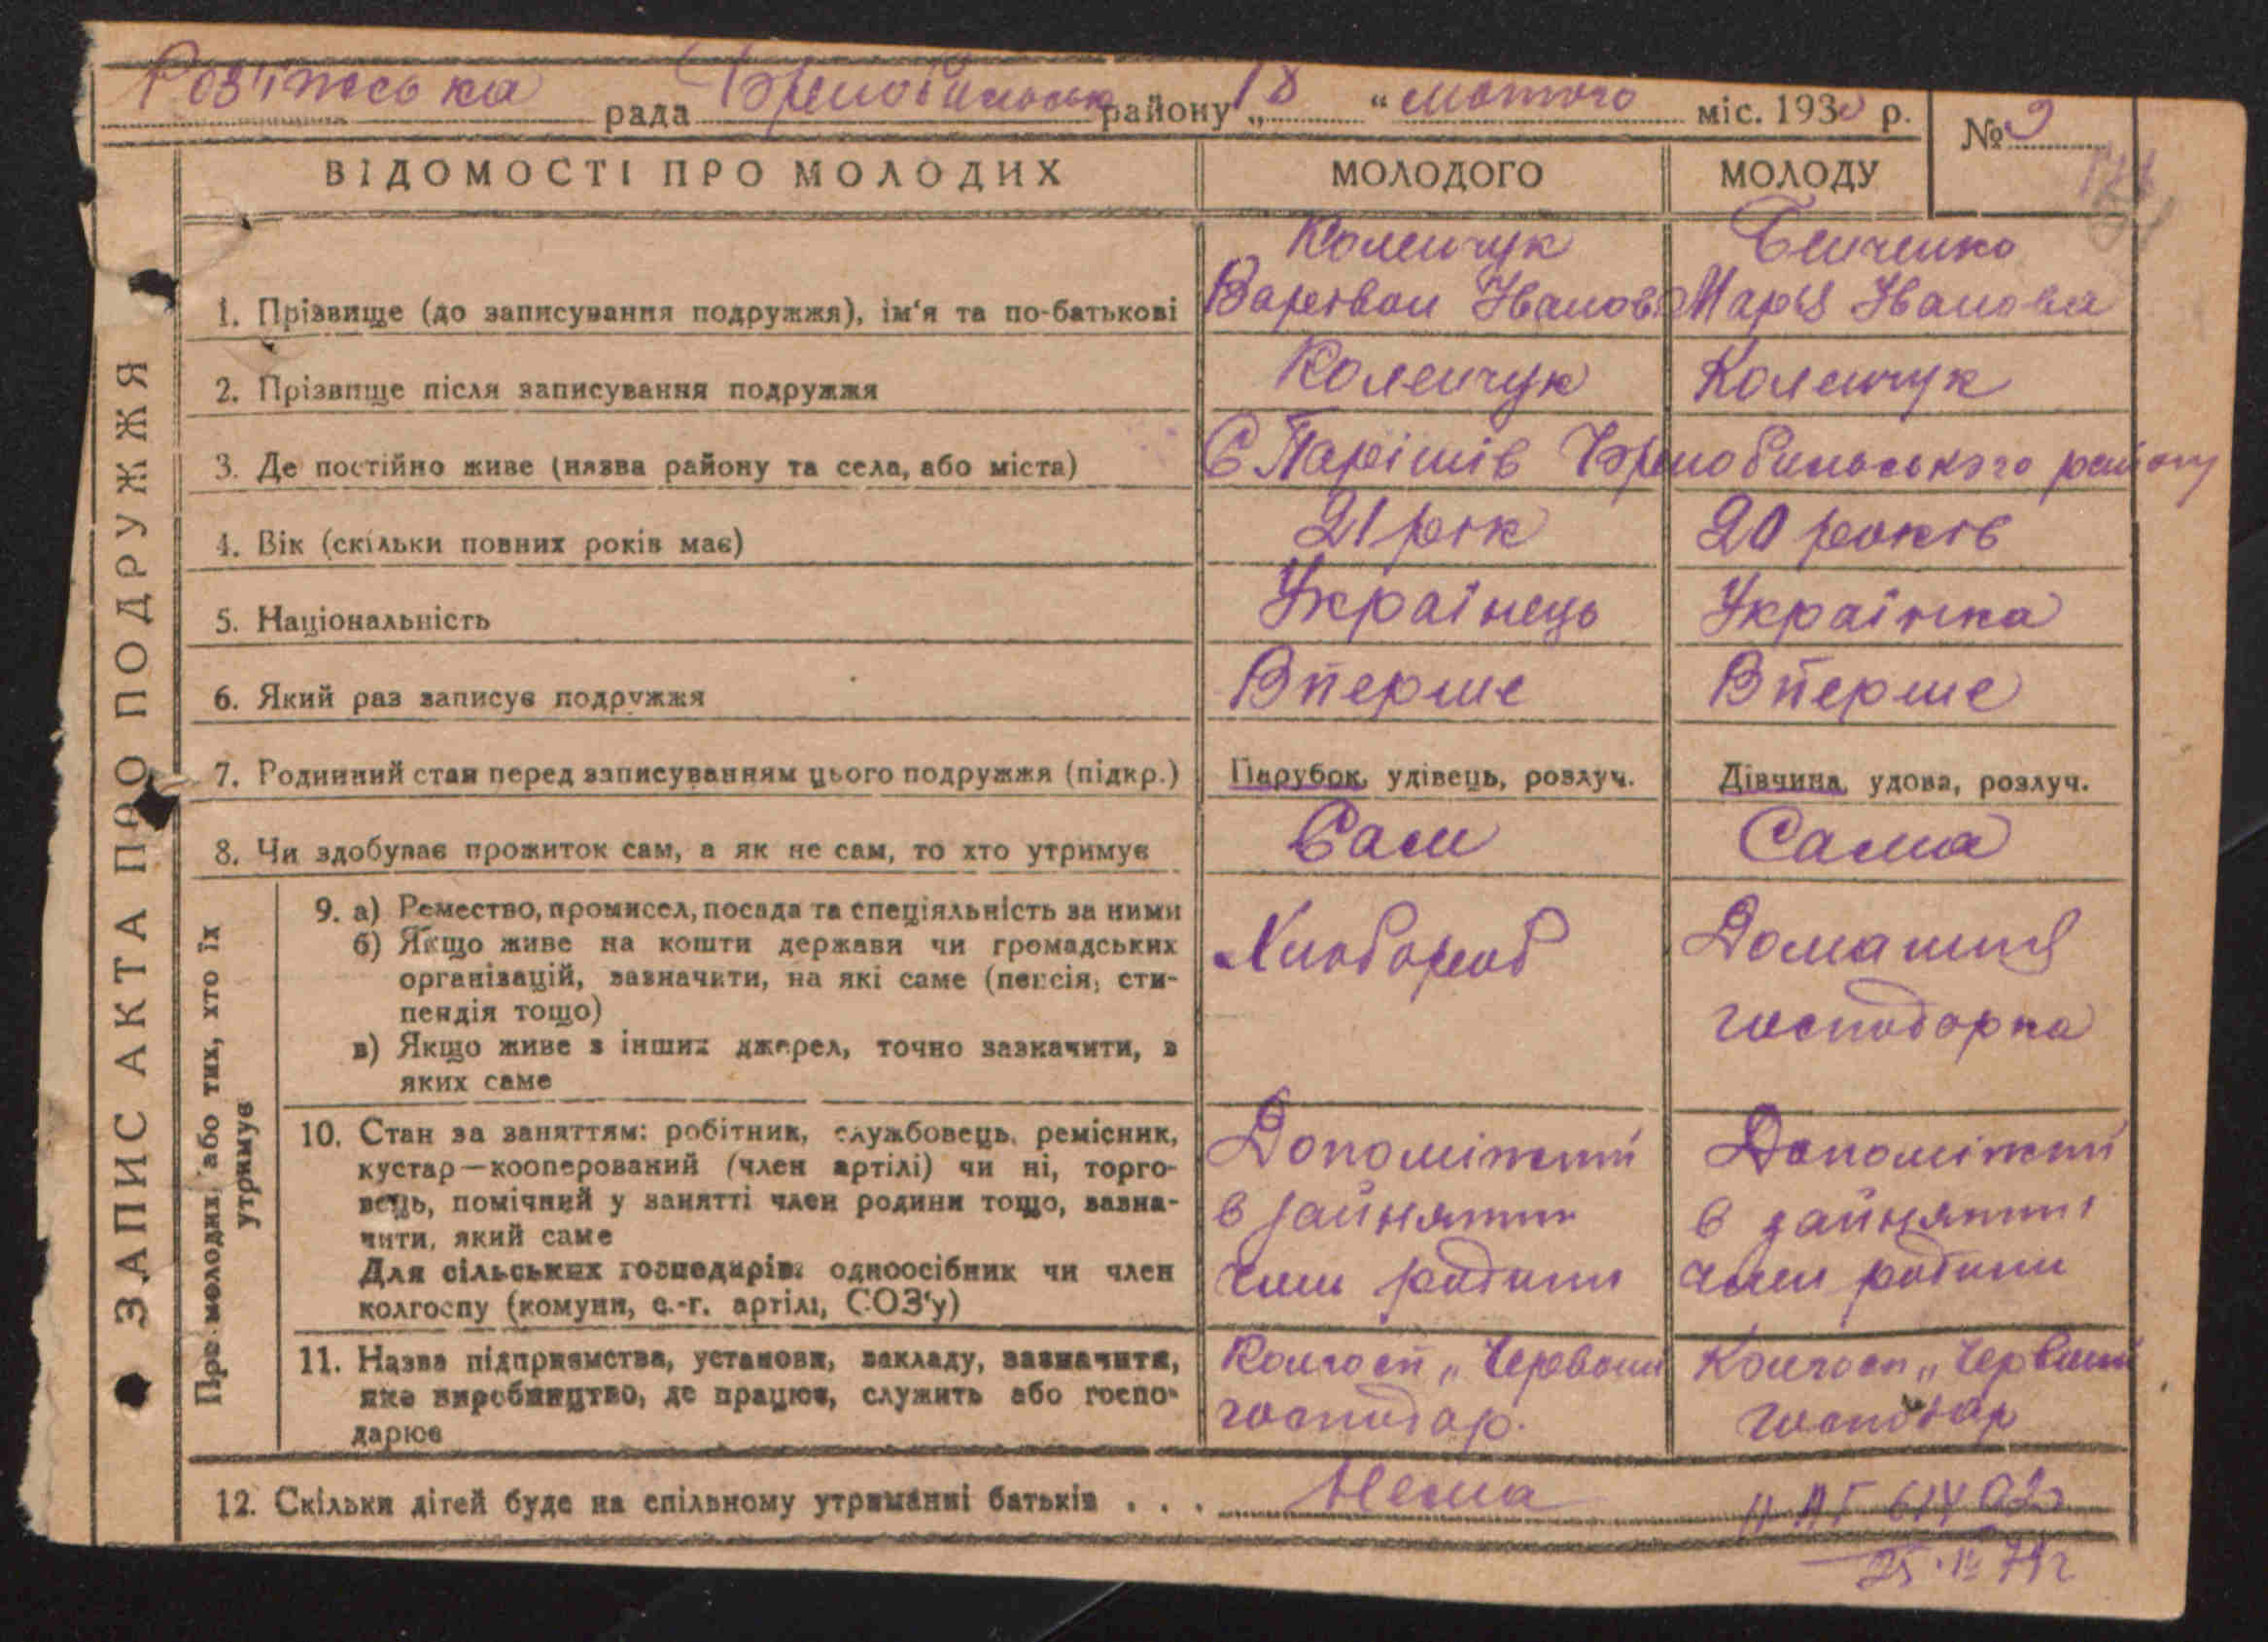 Розїжська рада Чорнобильськ району „ 18 “ лютого міс. 193 р.
№ 9
ВІДОМОСТІ ПРО МОЛОДИХ
МОЛОДОГО
МОЛОДУ
ЗАПИС АКТА ПРО ПОДРУЖЖЯ
1. Прізвище (до записування подружжя), ім'я та по-батькові
Коленчук
Іванов
Марія Іванова
2. Прізвище після записування подружжя
Коленчук
Коленчук
3. Де постійно живе (назва району та села, або міста)
С Парішів Чорнобильського району
4. Вік (скільки повних років має)
21 рік
20 років
5. Національність
Українець
Українка
6. Який раз записує подружжя
Вперше
Вперше
7. Родинний стан перед записуванням цього подружжя (підкр.)
Парубок, удівець, розлуч.
Дівчина, удова, розлуч.
8. Чи здобуває прожиток сам, а як не сам, то хто утримує
Сам
Сама
Про молодих або тих, хто їх
утримує
9. а) Ремество, промисел, посада та спеціяльність за ними
б) Якщо живе на кошти держави чи громадських
організацій, зазначити, на які саме (пенсія, сти-
пендія тощо)
в) Якщо живе з інших джерел, точно зазначити, з
яких саме
Хлібороб
Домашня
господарка
10. Стан за заняттям: робітник, службовець, ремісник,
кустар—кооперований (член артілі) чи ні, торго-
вець, помічний у занятті член родини тощо, зазна-
чити, який саме
Для сільських господарів: одноосібник чи член
колгоспу (комуни, с.-г. артілі, СОЗ'у)
Допоміжний
в зайнятті
член родини
Допоміжний
в зайнятті
член родини
11. Назва підприємства, установи, закладу, зазначити,
яке виробництво, де працює, служить або госпо-
дарює
Колгосп „Червоний
господар.
Колгосп „Червоний
господар
12. Скільки дітей буде на спільному утриманні батьків . . .
Нема